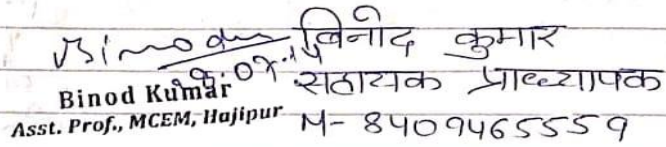 Binod विनोद कुमार
Binod Kumar सहायक प्राध्यापक
Asst. Prof., MCEM, Hajipur M- 8409465559